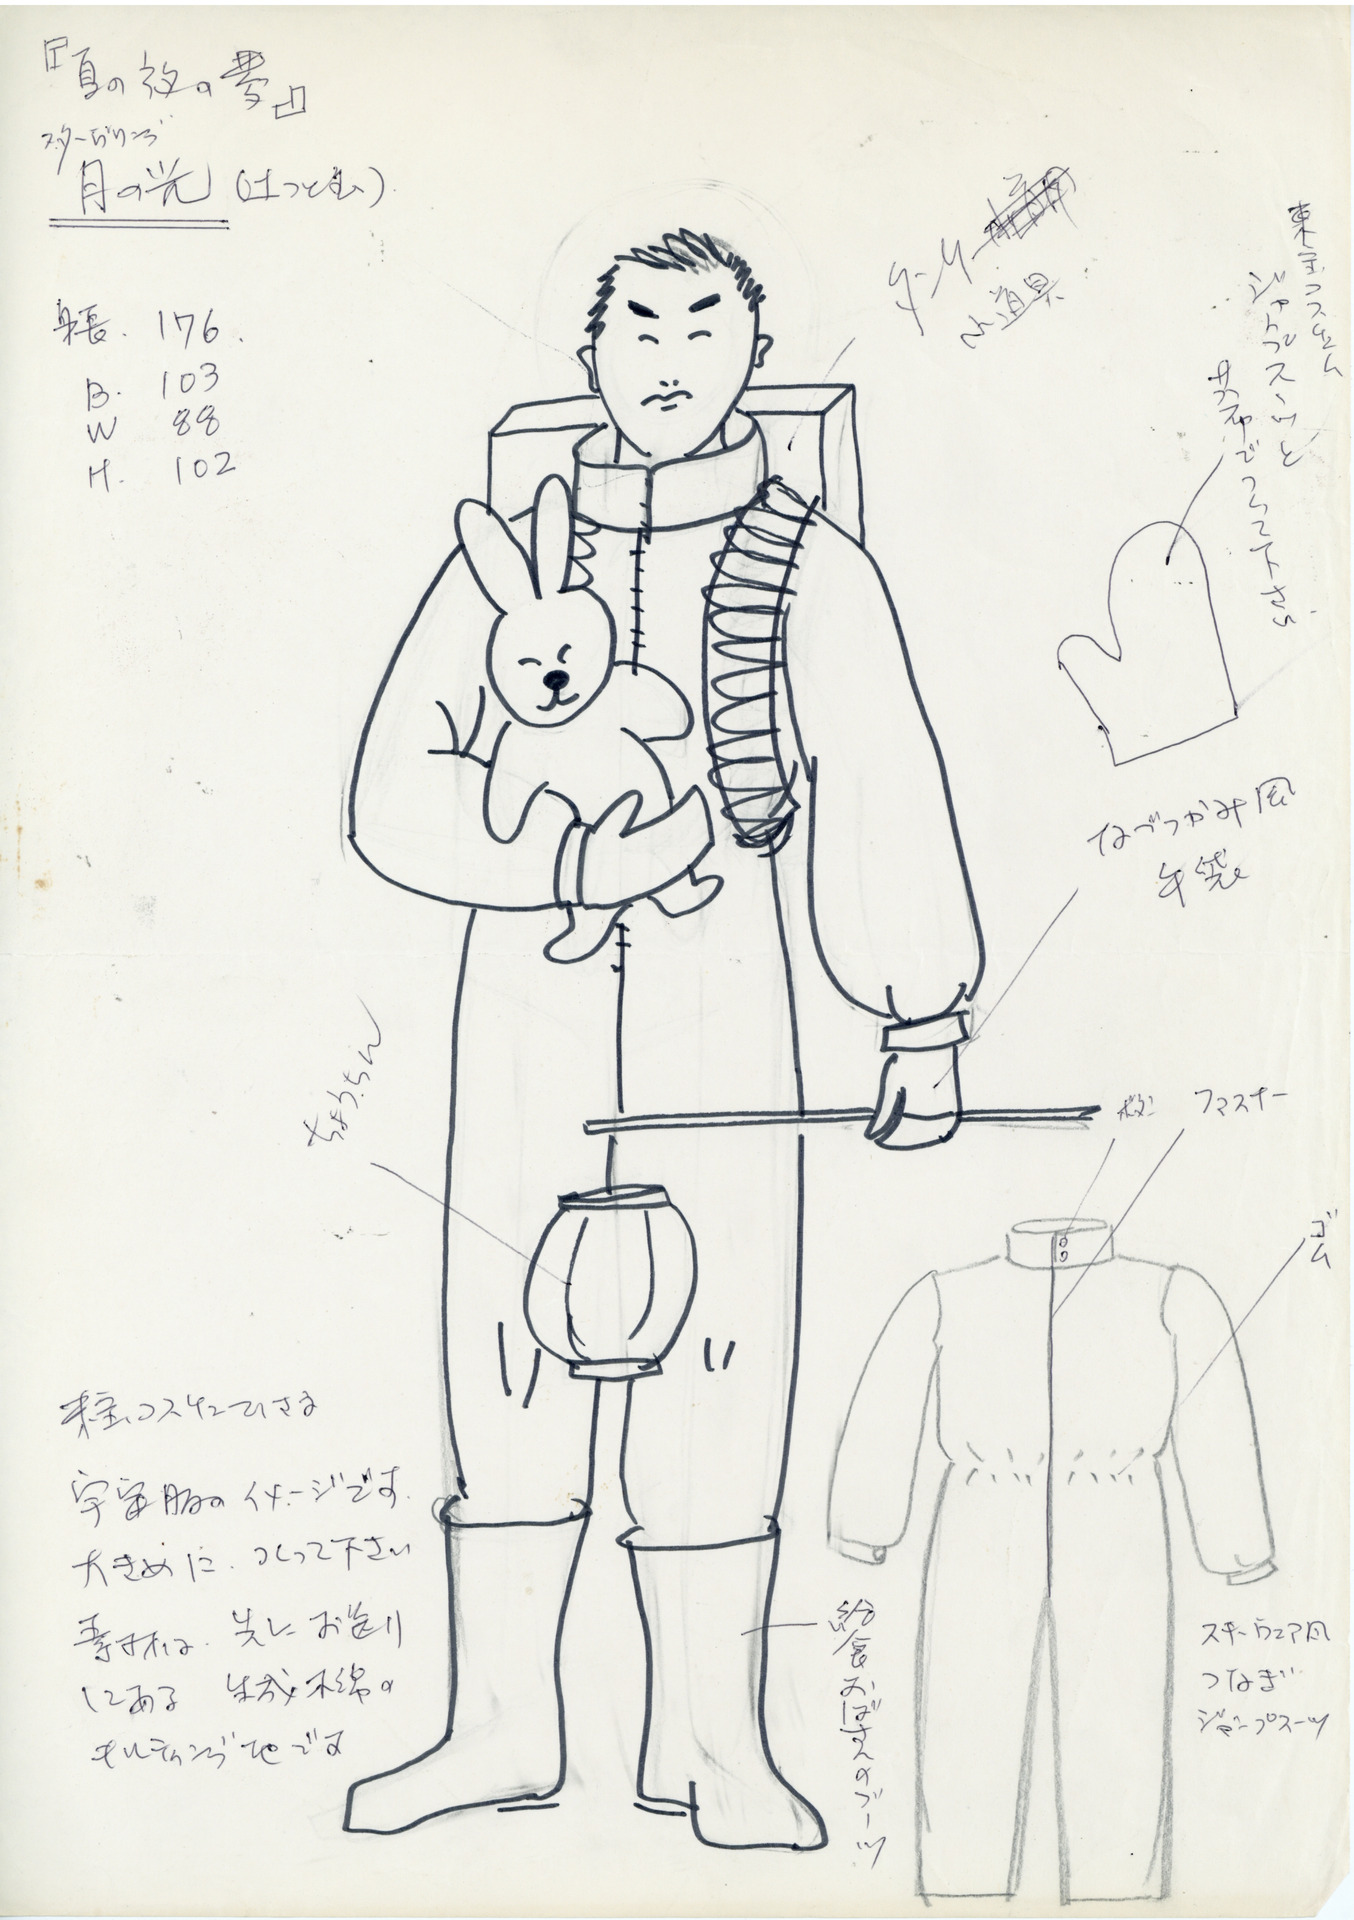 『夏の夜の夢』
スターヴリング
月の光 (辻つとむ)
身長. 176.
B. 103
W 88
H. 102
タンク
小道具
東宝コスチューム
ジャンプスーツと
共布でつくって下さい
なべつかみ風
手袋
ちょうちん
ボタン
ファスナー
ゴム
東宝コスチュームさま
宇宙服のイメージです.
大きめに. つくって下さい
素材は. 先にお送り
してある 生成木綿の
キルティング地です
給食おばさんのブーツ
スキーウェア風
つなぎ
ジャンプスーツ